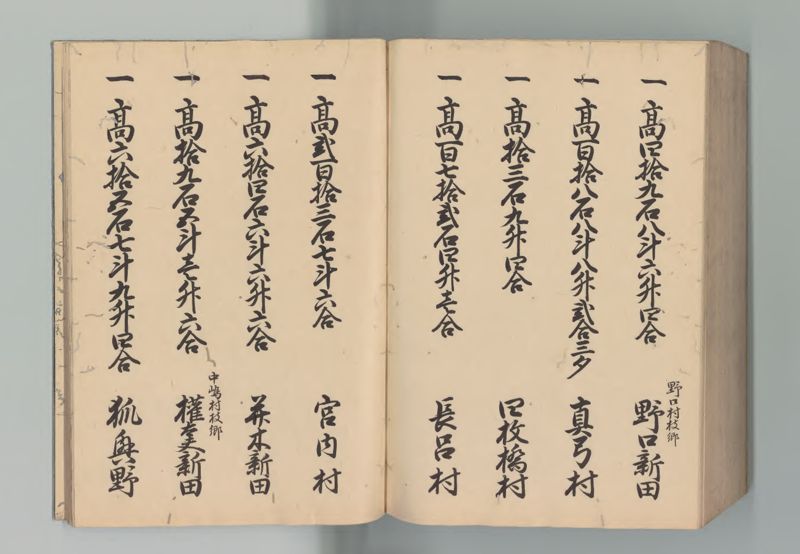 一高四拾九石八斗六升四合 野口村枝郷 野口新田
一高百拾八石八斗八升弐合三夕 真弓村
一高拾三石九升四合 四枚橋村
一高百七拾弐石四升壱合 長呂村
一高弐百拾三石七斗六合 宮内村
一高六拾四石六斗六升六合 並木新田
一高拾九石五斗壱升六合 中嶋村枝郷 権太夫新田
一高六拾五石七斗九升四合 狐興野